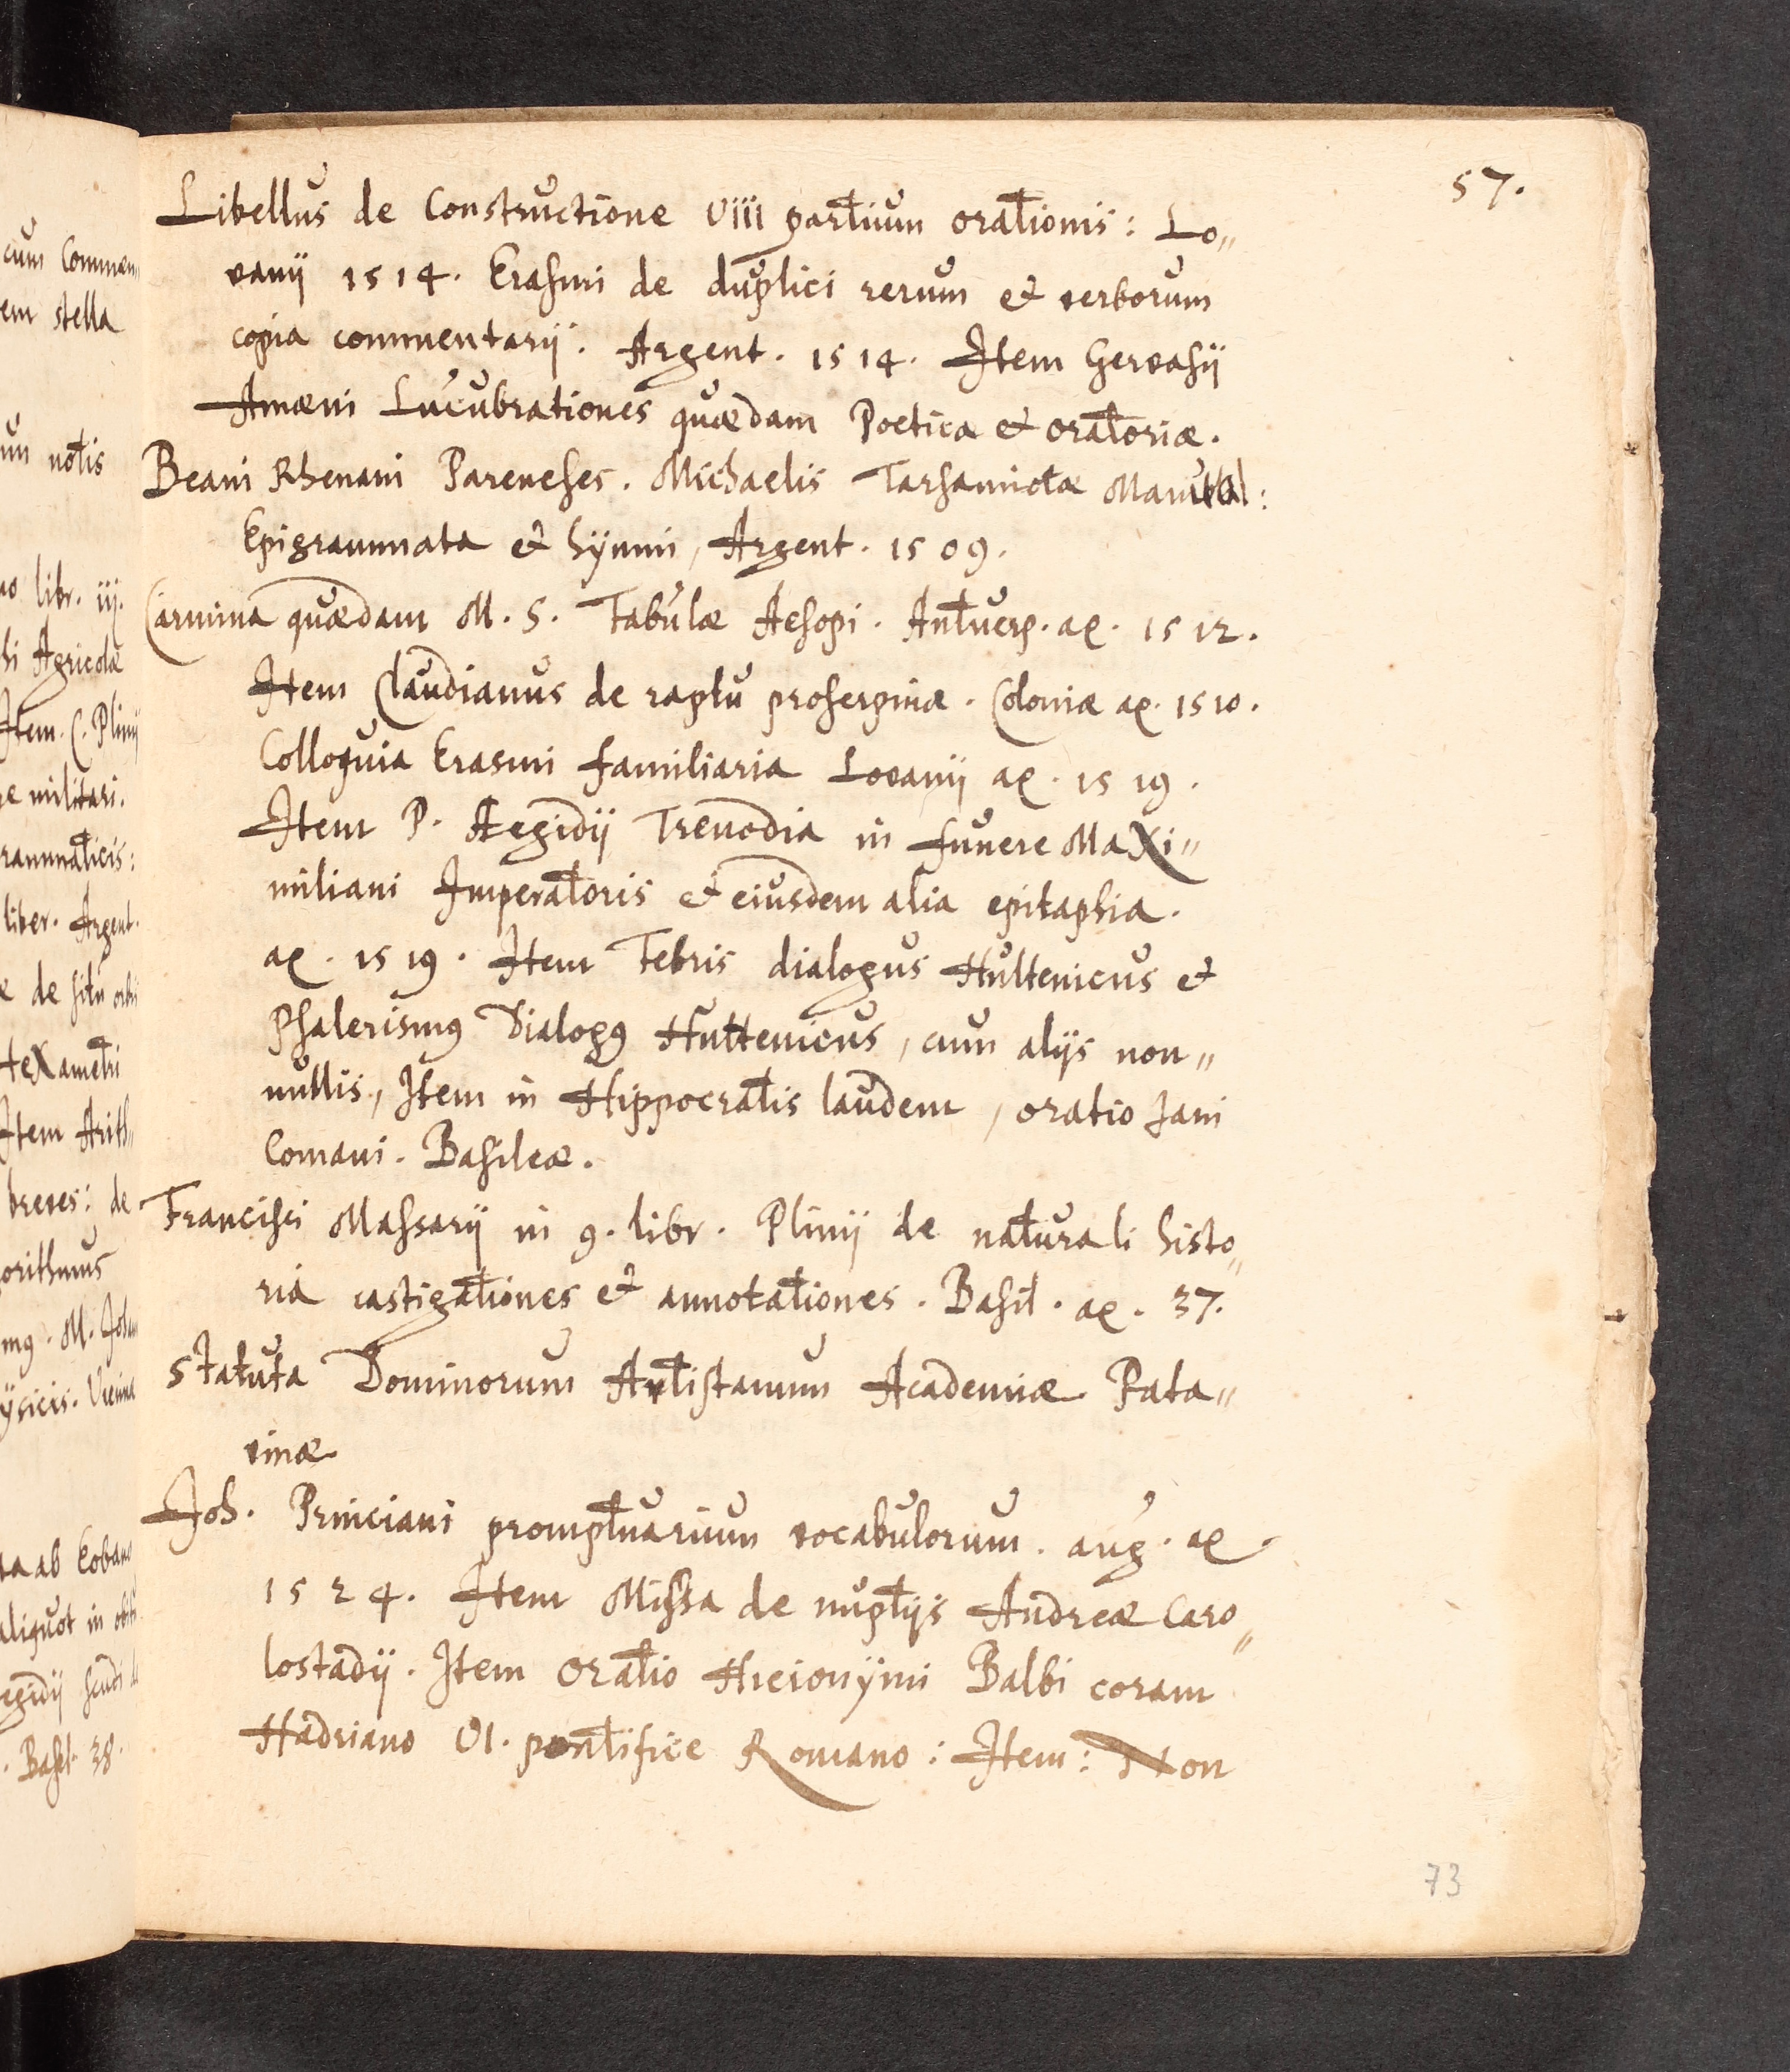 57.
Libellus de Constructione VIII partium orationis: Lo„
vanij 1514. Erasmi de duplici rerum et verborum
copia commentarij. Argent. 1514. Item Gervasij
Amæni Lucubrationes quædam Poeticæ et oratoriæ.
Beani Rhenani Pareneses. Michaelis Tarhaniotæ
Epigrammata et hÿmni, Argent. 1509.
Carmina quædam M. S. Fabulæ Aesopi. Antuerp. aº. 1512.
Item Claudianus de raptu proserpinæ. Coloniæ aº. 1510.
Colloquia Erasmi familiaria Lovanij aº. 1519.
Item P. Aegidij Trenodia in funere Maxi„
miliani Imperatoris et eiusdem alia epitaphia.
aº. 1519. Item Febris dialogus Hultenicus et
Phalerismꝰ Dialogꝰ Huttenicus, cum alijs non„
nullis, Item in Hippocratis laudem, oratio Jani
Comani. Basileæ.
Francisci Massarij in 9. libr. Plinij de naturali histo„
ria castigationes et annotationes. Basil. aº. 37.
Statuta Dominorum Artistarum Academiæ Pata„
vinæ
Joh. Priniciani promptuarium vocabulorum. aug. aº
1524. Item Missa de nuptijs Andreæ Caro„
lostadij. Item Oratio Hieionÿmi Balbi coram
Hadriano VI. pontifice Romano: Item: Non
73
cum Commen„
em stella
notis
libr. iij.
Agricolæ
Item. C. Plinij
militari.
rammaticis:
liber. Argent.
de situ orbis
Hexametri
Item Arith„
breves: de
orithmus
mꝰ. M. Joh
ÿsicis.
ab Eoban
aliquot in
egidij
. Basil. 38.